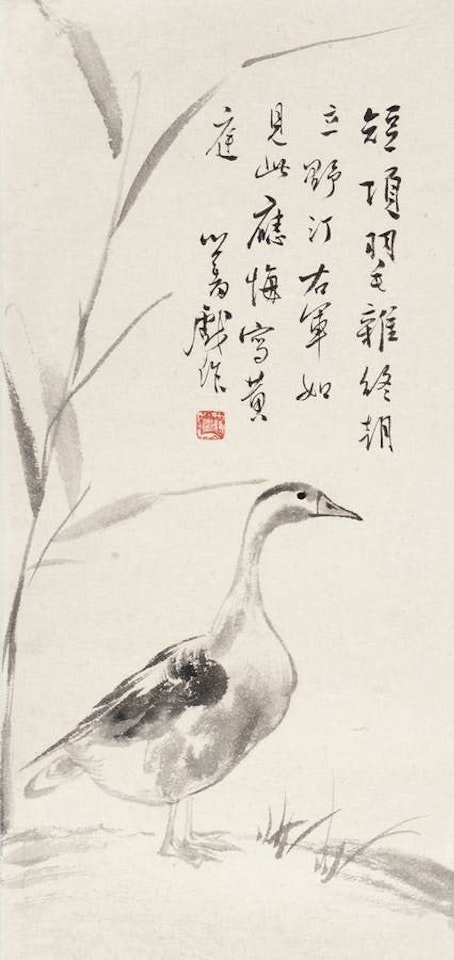 短項羽毛雜終朝
立野汀右軍如
見此應悔寫黃
庭
心畬戲作